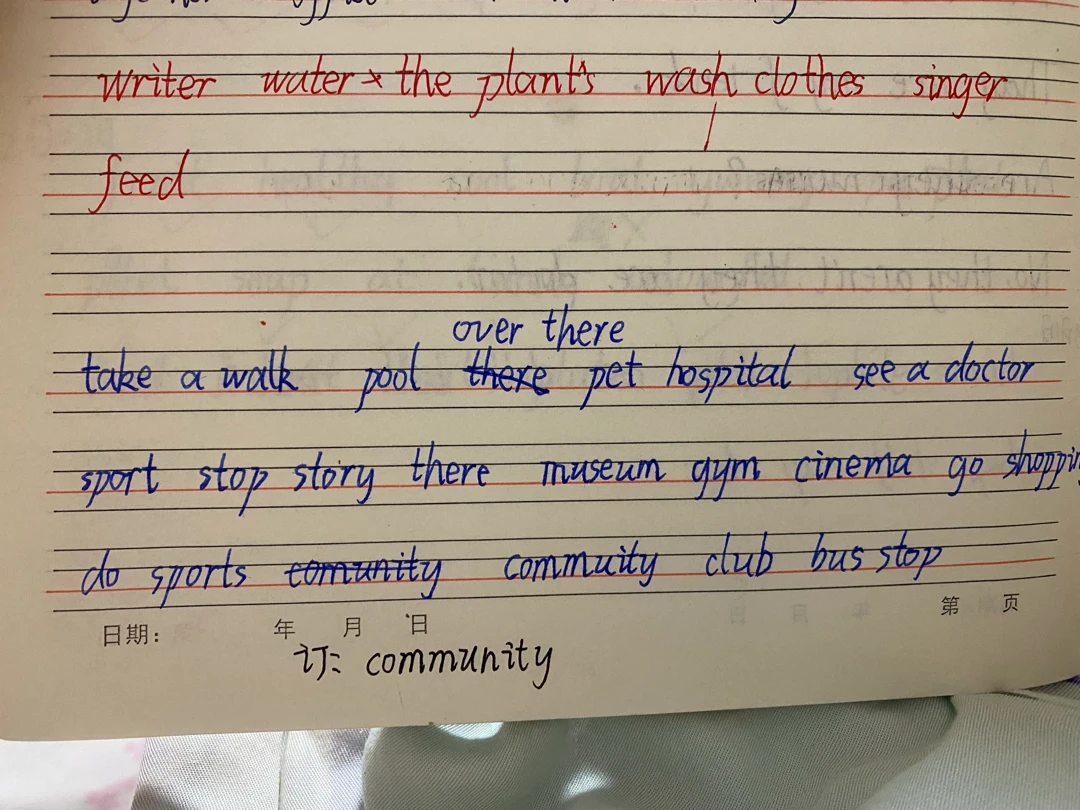 writer water the plants wash clothes singer
feed
over there
take a walk pool there pet hospital see a doctor
sport stop story there museum gym cinema go shoppin
do sports comunity commuity club bus stop
日期: 年 月 日 第 页
订: community